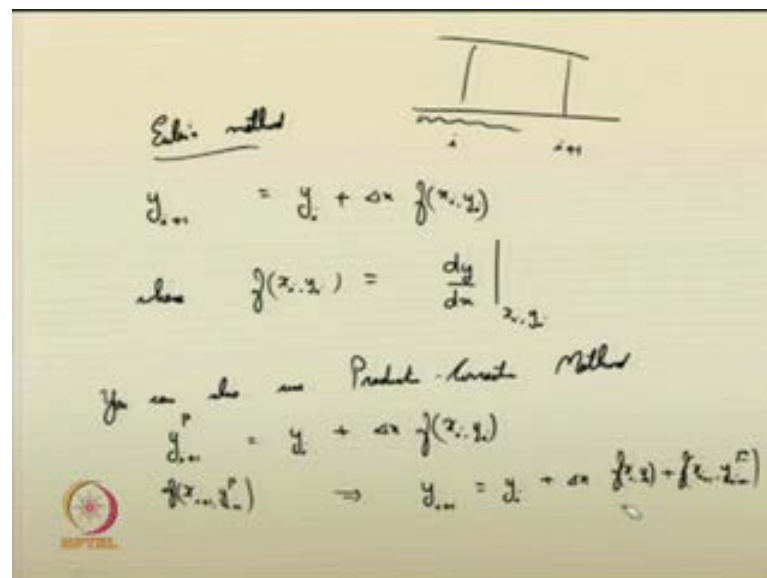 i i+1
Euler's method
y_{i+1} = y_i + Δx f(x_i, y_i)
where f(x_i, y_i) = dy/dx |_{x_i, y_i}
You can also use Predictor-Corrector Method
y^P_{i+1} = y_i + Δx f(x_i, y_i)
f(x_{i+1}, y^P_{i+1}) ⇒ y_{i+1} = y_i + Δx f(x_i, y_i) + f(x_{i+1}, y^P_{i+1})
NPTEL